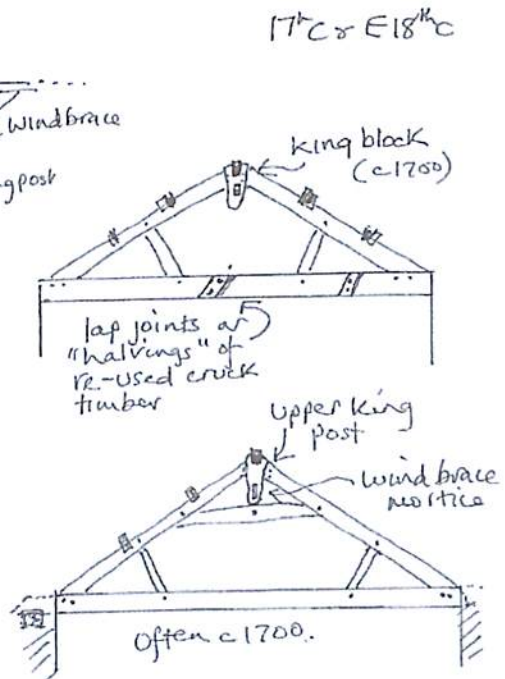 17th C or E18th C
windbrace
gpost
king block
(c1700)
lap joints or
"halvings" of
re-used cruck
timber
upper king
post
wind brace
mortice
Often c1700.